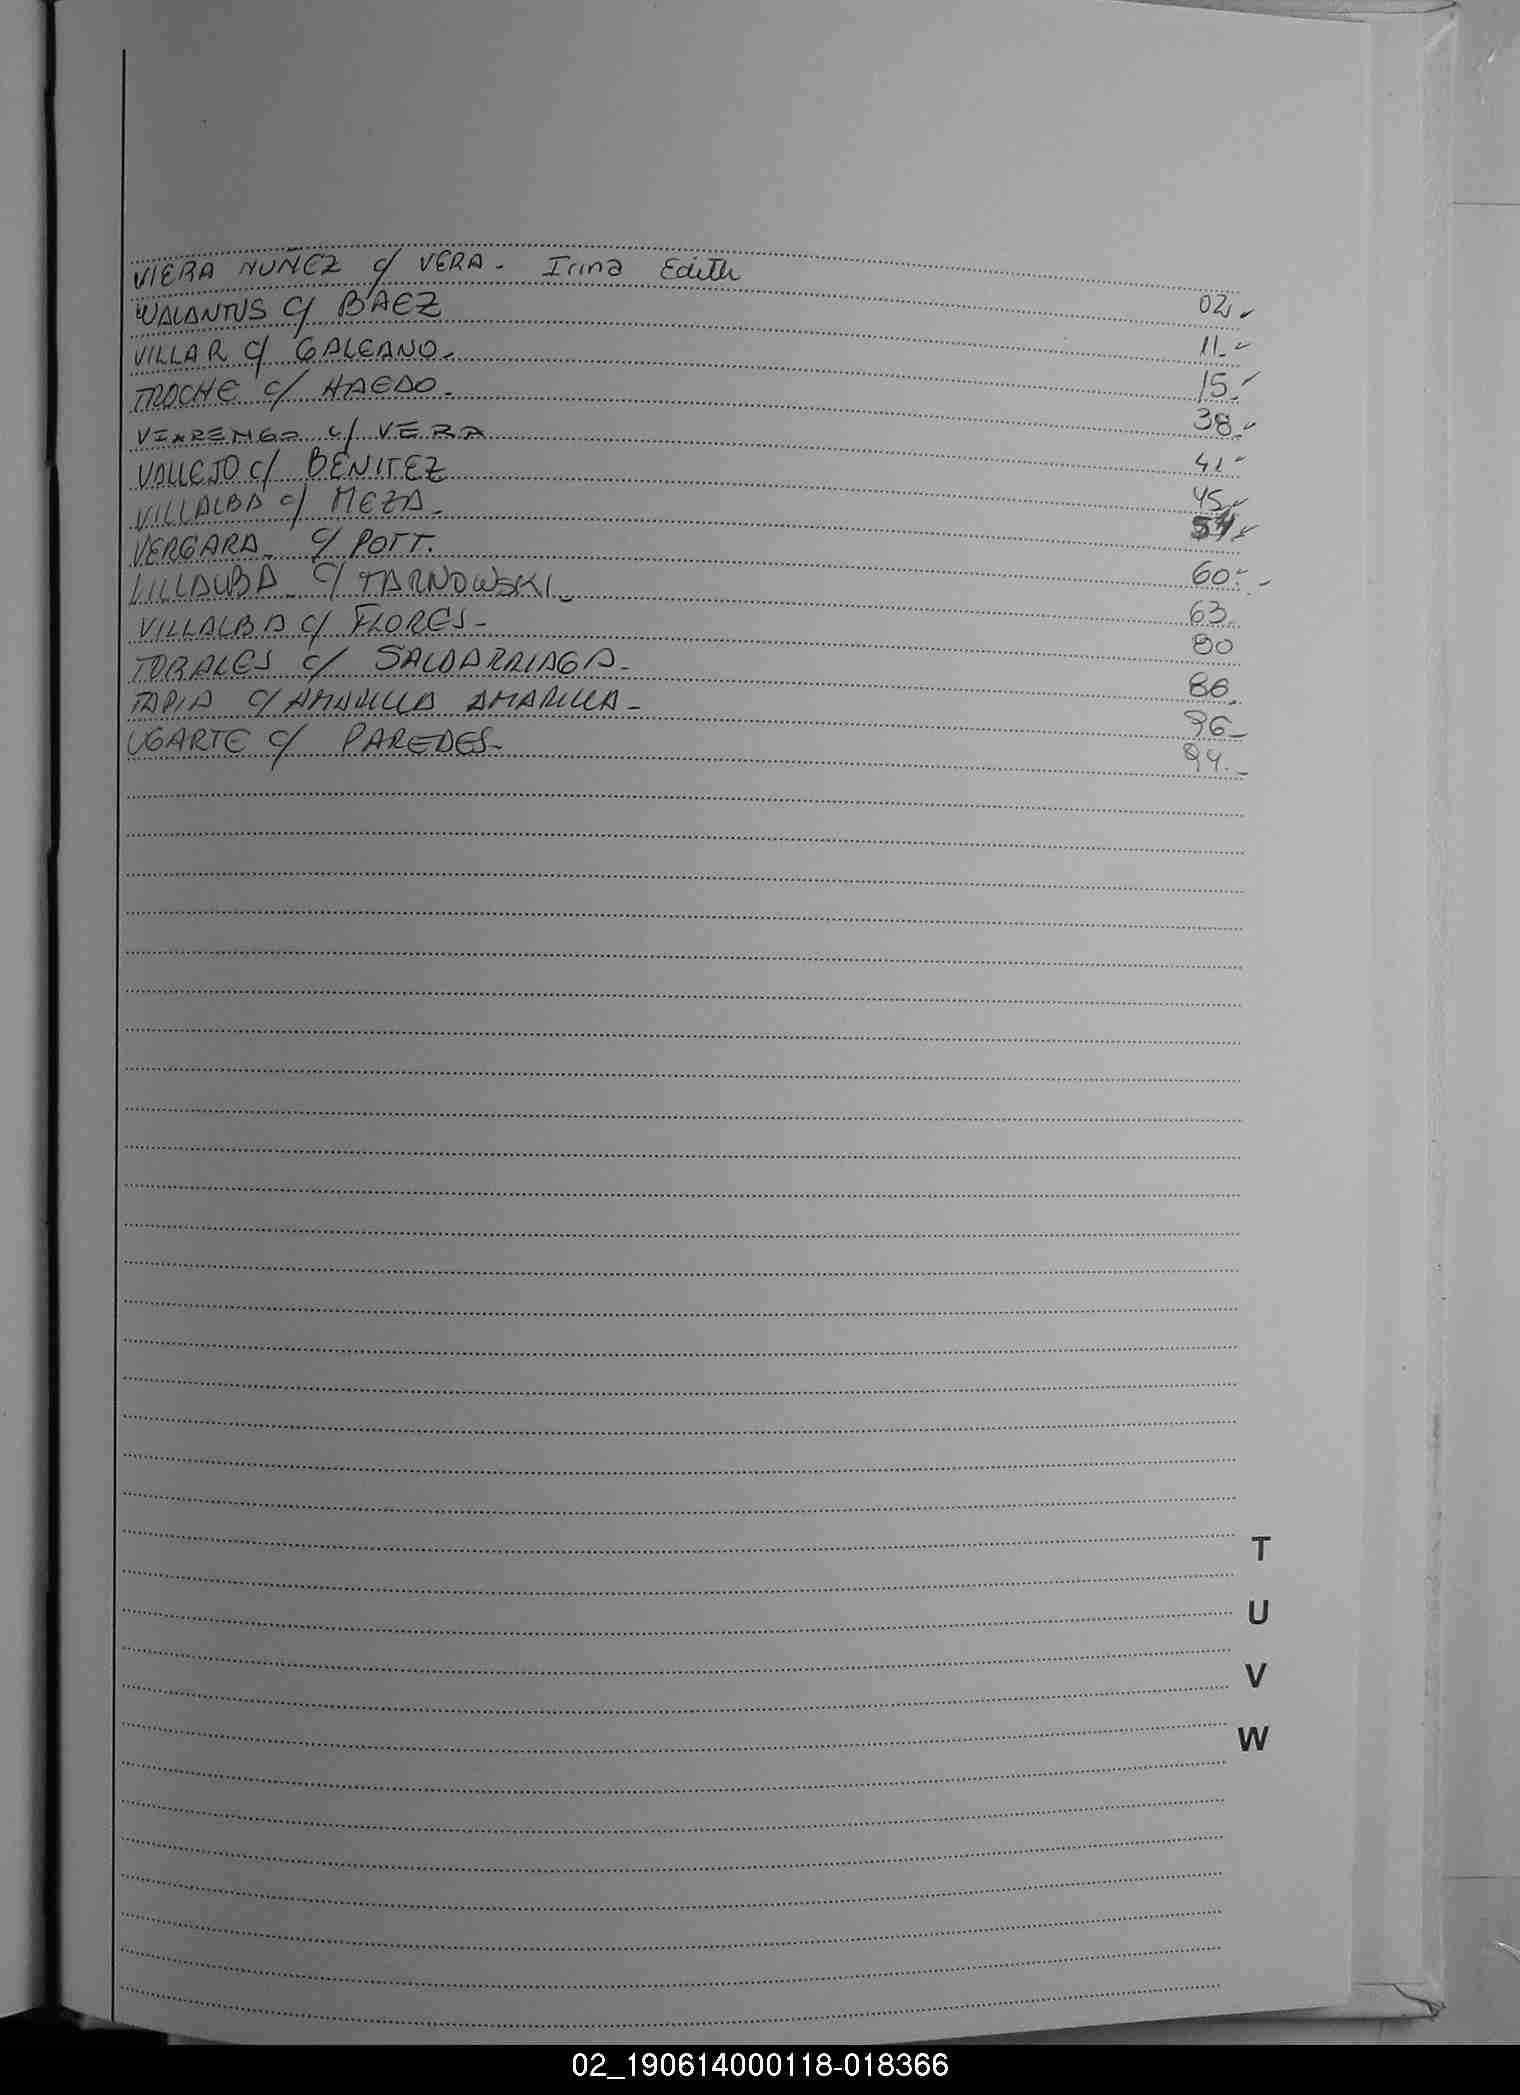 VIERA NUÑEZ c/ VERA - Irina Edith 02
WALANTUS c/ BAEZ 11.-
VILLAR c/ GALEANO.- 15.-
TROCHE c/ HAEDO.- 38.-
c/ VERA 41-
VALLEJO c/ BENITEZ 45
VILLALBA c/ MEZA.- 54
VERGARA c/ POTT. 60.-
VILLALBA c/ TARNOWSKI.- 63.
VILLALBA c/ FLORES - 80
TORALES c/ SALDARRIAGA - 86.
TAPIA c/ AMARILLA AMARILLA - 96-
UGARTE c/ PAREDES.- 94.-
T
U
V
W
02_190614000118-018366